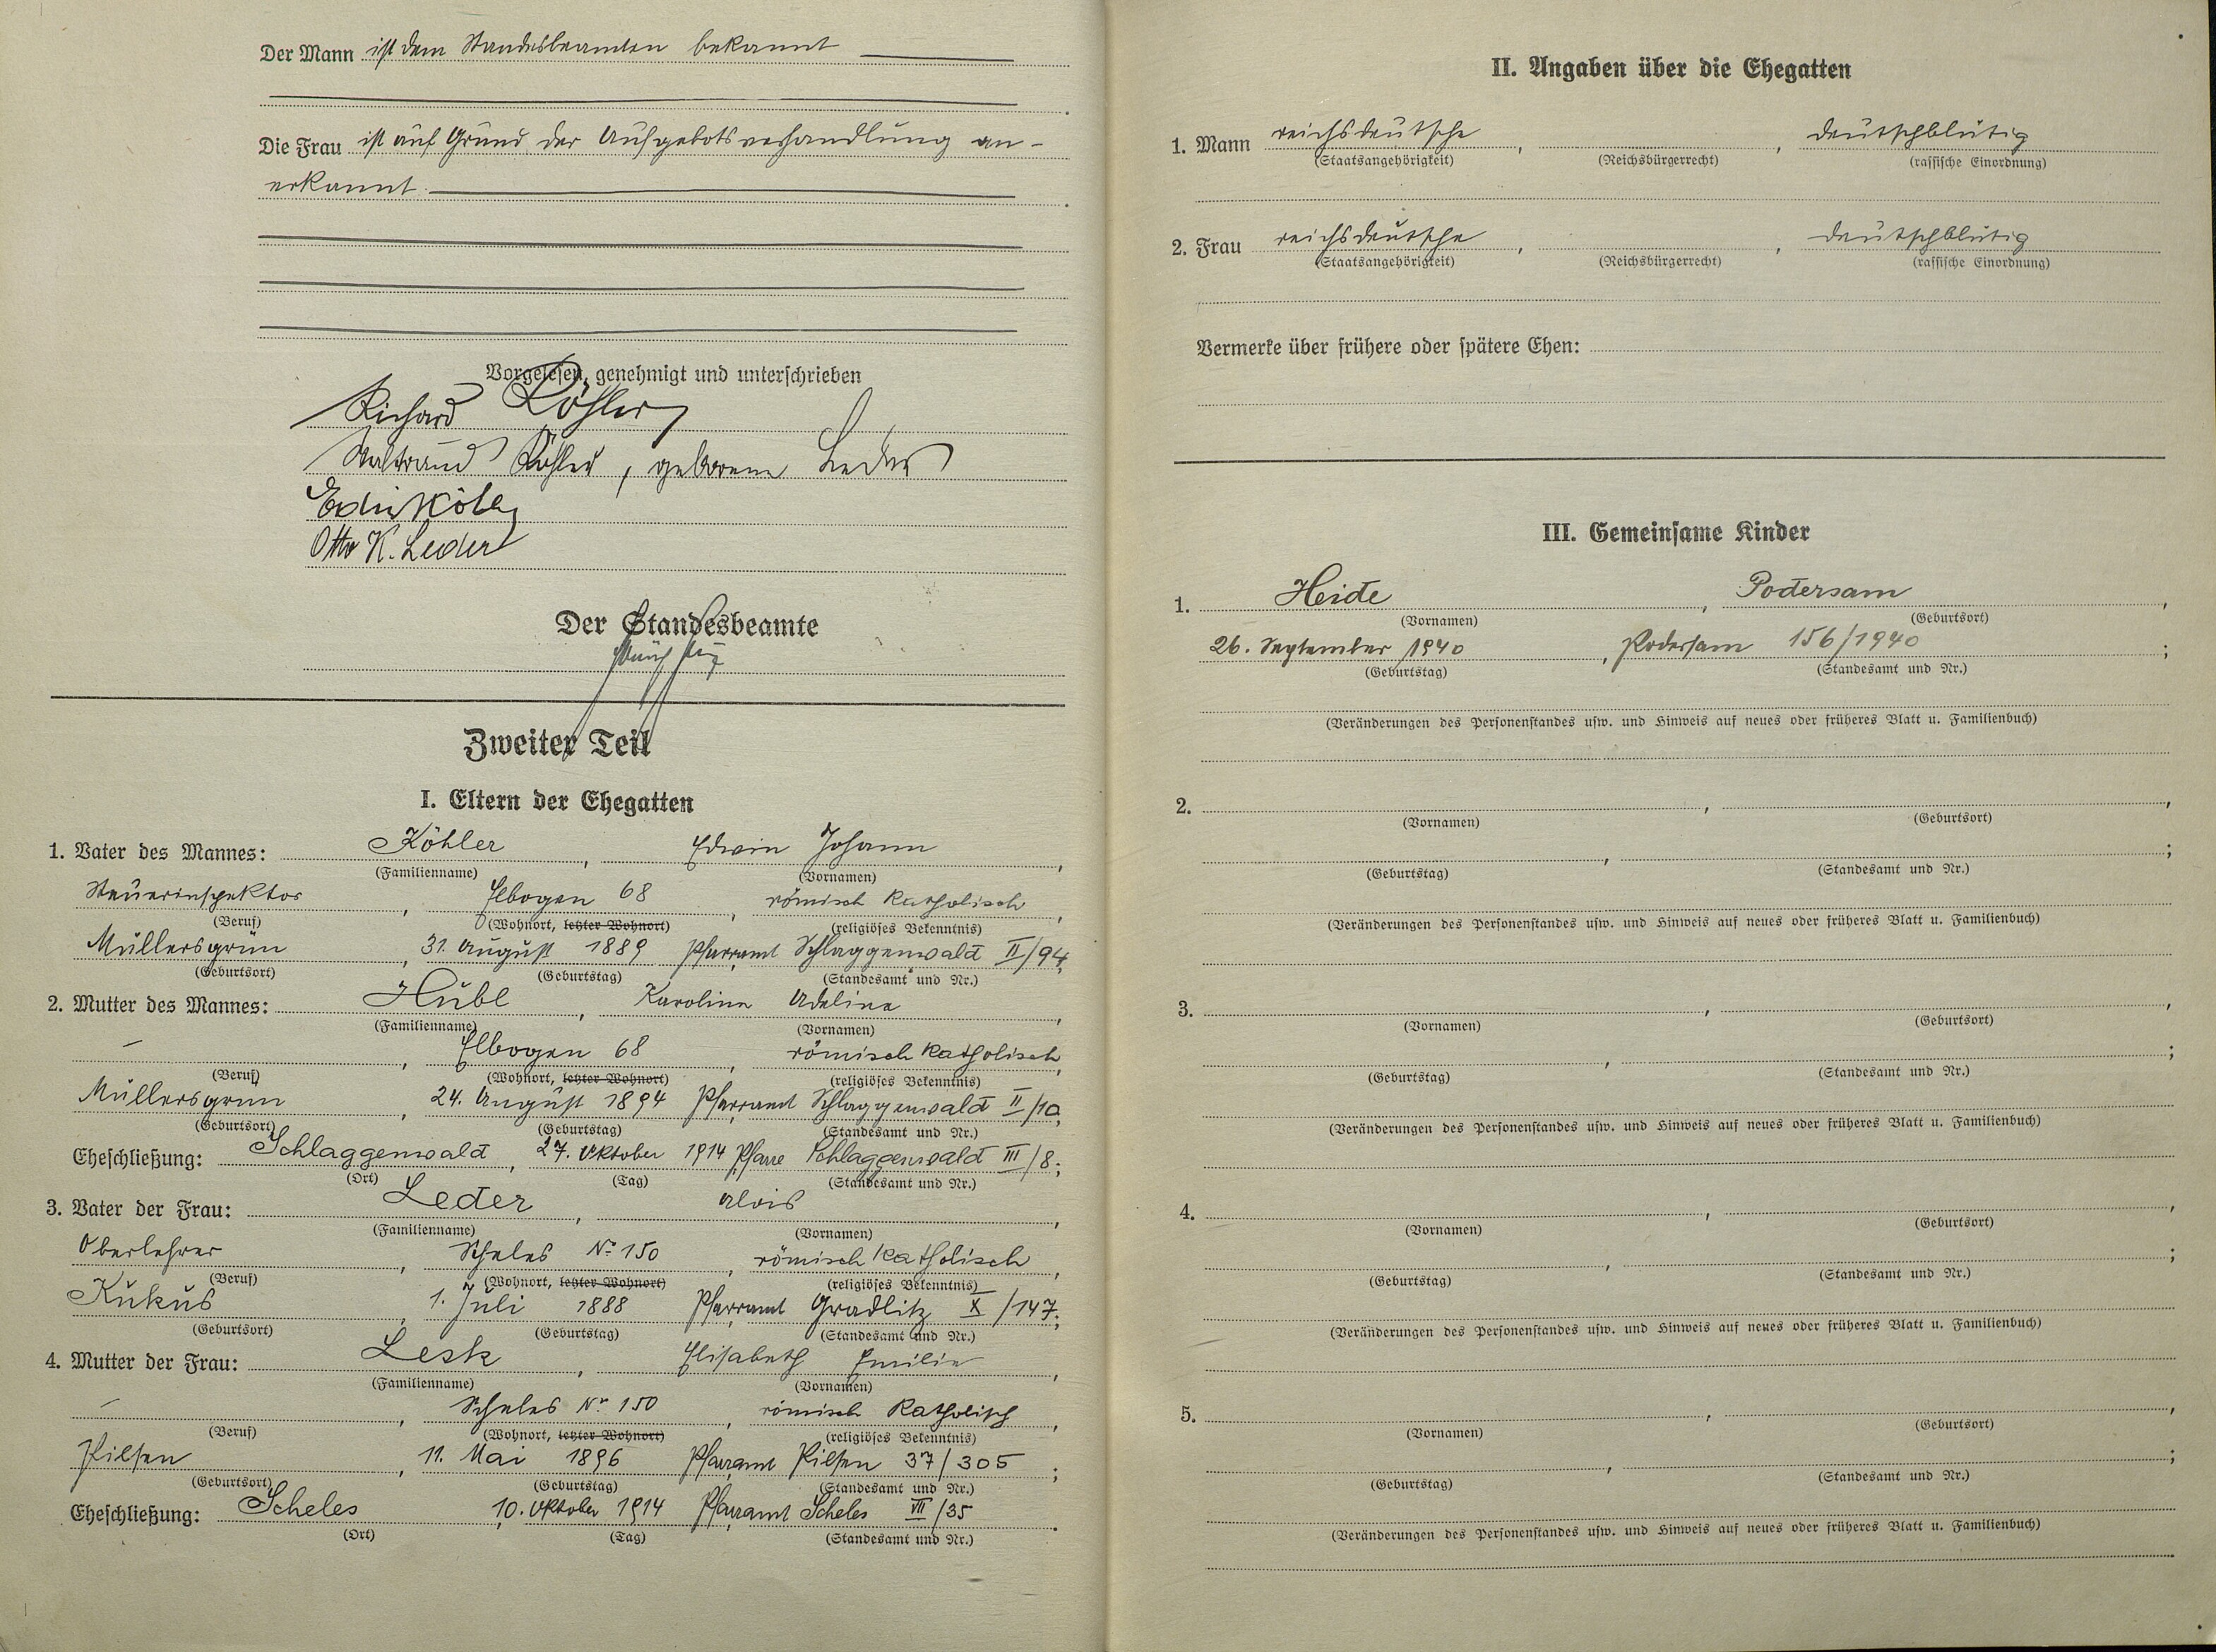 Der Mann ist dem Standesbeamten bekannt
Die Frau ist auf Grund der Aufgebotsverhandlung an-
erkannt.
Vorgelesen, genehmigt und unterschrieben
Richard Köhler
Waltraud Köhler, geborene Leder
Otto K. Leder
Der Standesbeamte
Zweiter Teil
I. Eltern der Ehegatten
1. Vater des Mannes: Köhler, Edwin Johann,
(Familienname) (Vornamen)
Steuerinspektor, Elbogen 68, römisch katholisch,
(Beruf) (Wohnort, letzter Wohnort) (religiöses Bekenntnis)
Müllersgrün, 31. August 1889 Pfarramt Schlaggenwald II/94;
(Geburtsort) (Geburtstag) (Standesamt und Nr.)
2. Mutter des Mannes: Hübl, Karolina Adelina,
(Familienname) (Vornamen)
–, Elbogen 68, römisch katholisch,
(Beruf) (Wohnort, letzter Wohnort) (religiöses Bekenntnis)
Müllersgrün, 24. August 1894 Pfarramt Schlaggenwald II/10;
(Geburtsort) (Geburtstag) (Standesamt und Nr.)
Eheschließung: Schlaggenwald, 27. Oktober 1914 Pfarre Schlaggenwald III/8;
(Ort) (Tag) (Standesamt und Nr.)
3. Vater der Frau: Leder, Alois,
(Familienname) (Vornamen)
Oberlehrer, Scheles No 150, römisch katholisch,
(Beruf) (Wohnort, letzter Wohnort) (religiöses Bekenntnis)
Kukus, 1. Juli 1888 Pfarramt Gradlitz X/147;
(Geburtsort) (Geburtstag) (Standesamt und Nr.)
4. Mutter der Frau: Lesk, Elisabeth Emilie,
(Familienname) (Vornamen)
–, Scheles Nr 150, römisch katholisch,
(Beruf) (Wohnort, letzter Wohnort) (religiöses Bekenntnis)
Pilsen, 11. Mai 1896 Pfarramt Pilsen 37/305;
(Geburtsort) (Geburtstag) (Standesamt und Nr.)
Eheschließung: Scheles, 10. Oktober 1914 Pfarramt Scheles VII/35.
(Ort) (Tag) (Standesamt und Nr.)
II. Angaben über die Ehegatten
1. Mann reichsdeutsche, , deutschblütig
(Staatsangehörigkeit) (Reichsbürgerrecht) (rassische Einordnung)
2. Frau reichsdeutsche, , deutschblütig
(Staatsangehörigkeit) (Reichsbürgerrecht) (rassische Einordnung)
Vermerke über frühere oder spätere Ehen:
III. Gemeinsame Kinder
1. Heide, Podersam,
(Vornamen) (Geburtsort)
26. September 1940, Podersam 156/1940;
(Geburtstag) (Standesamt und Nr.)
(Veränderungen des Personenstandes usw. und Hinweis auf neues oder früheres Blatt u. Familienbuch)
2. , ,
(Vornamen) (Geburtsort)
, ;
(Geburtstag) (Standesamt und Nr.)
(Veränderungen des Personenstandes usw. und Hinweis auf neues oder früheres Blatt u. Familienbuch)
3. , ,
(Vornamen) (Geburtsort)
, ;
(Geburtstag) (Standesamt und Nr.)
(Veränderungen des Personenstandes usw. und Hinweis auf neues oder früheres Blatt u. Familienbuch)
4. , ,
(Vornamen) (Geburtsort)
, ;
(Geburtstag) (Standesamt und Nr.)
(Veränderungen des Personenstandes usw. und Hinweis auf neues oder früheres Blatt u. Familienbuch)
5. , ,
(Vornamen) (Geburtsort)
, ;
(Geburtstag) (Standesamt und Nr.)
(Veränderungen des Personenstandes usw. und Hinweis auf neues oder früheres Blatt u. Familienbuch)